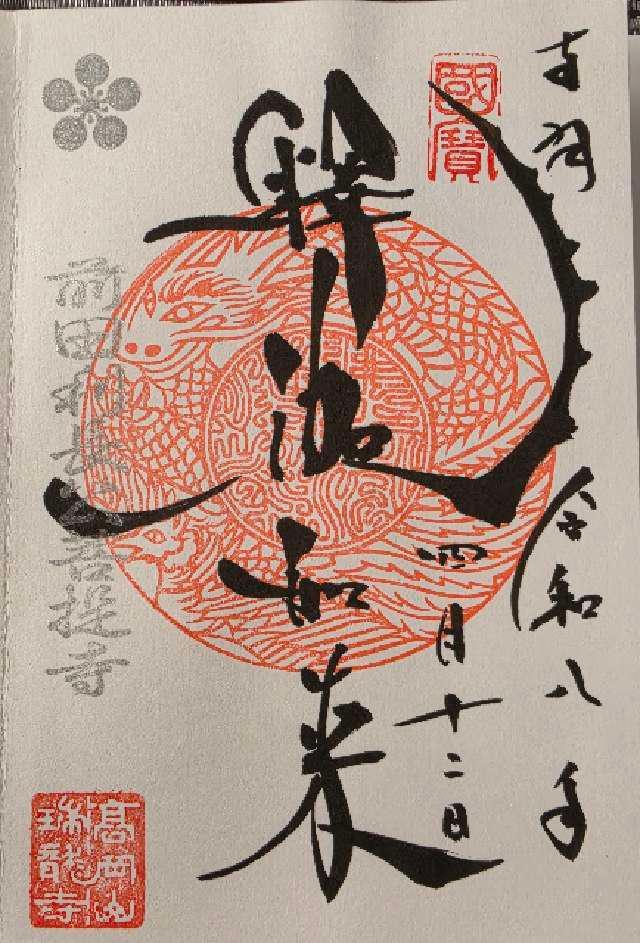 奉拝
令和八年
四月十二日
國寶
釋迦如来
前田利長公菩提寺
高岡山
瑞龍寺